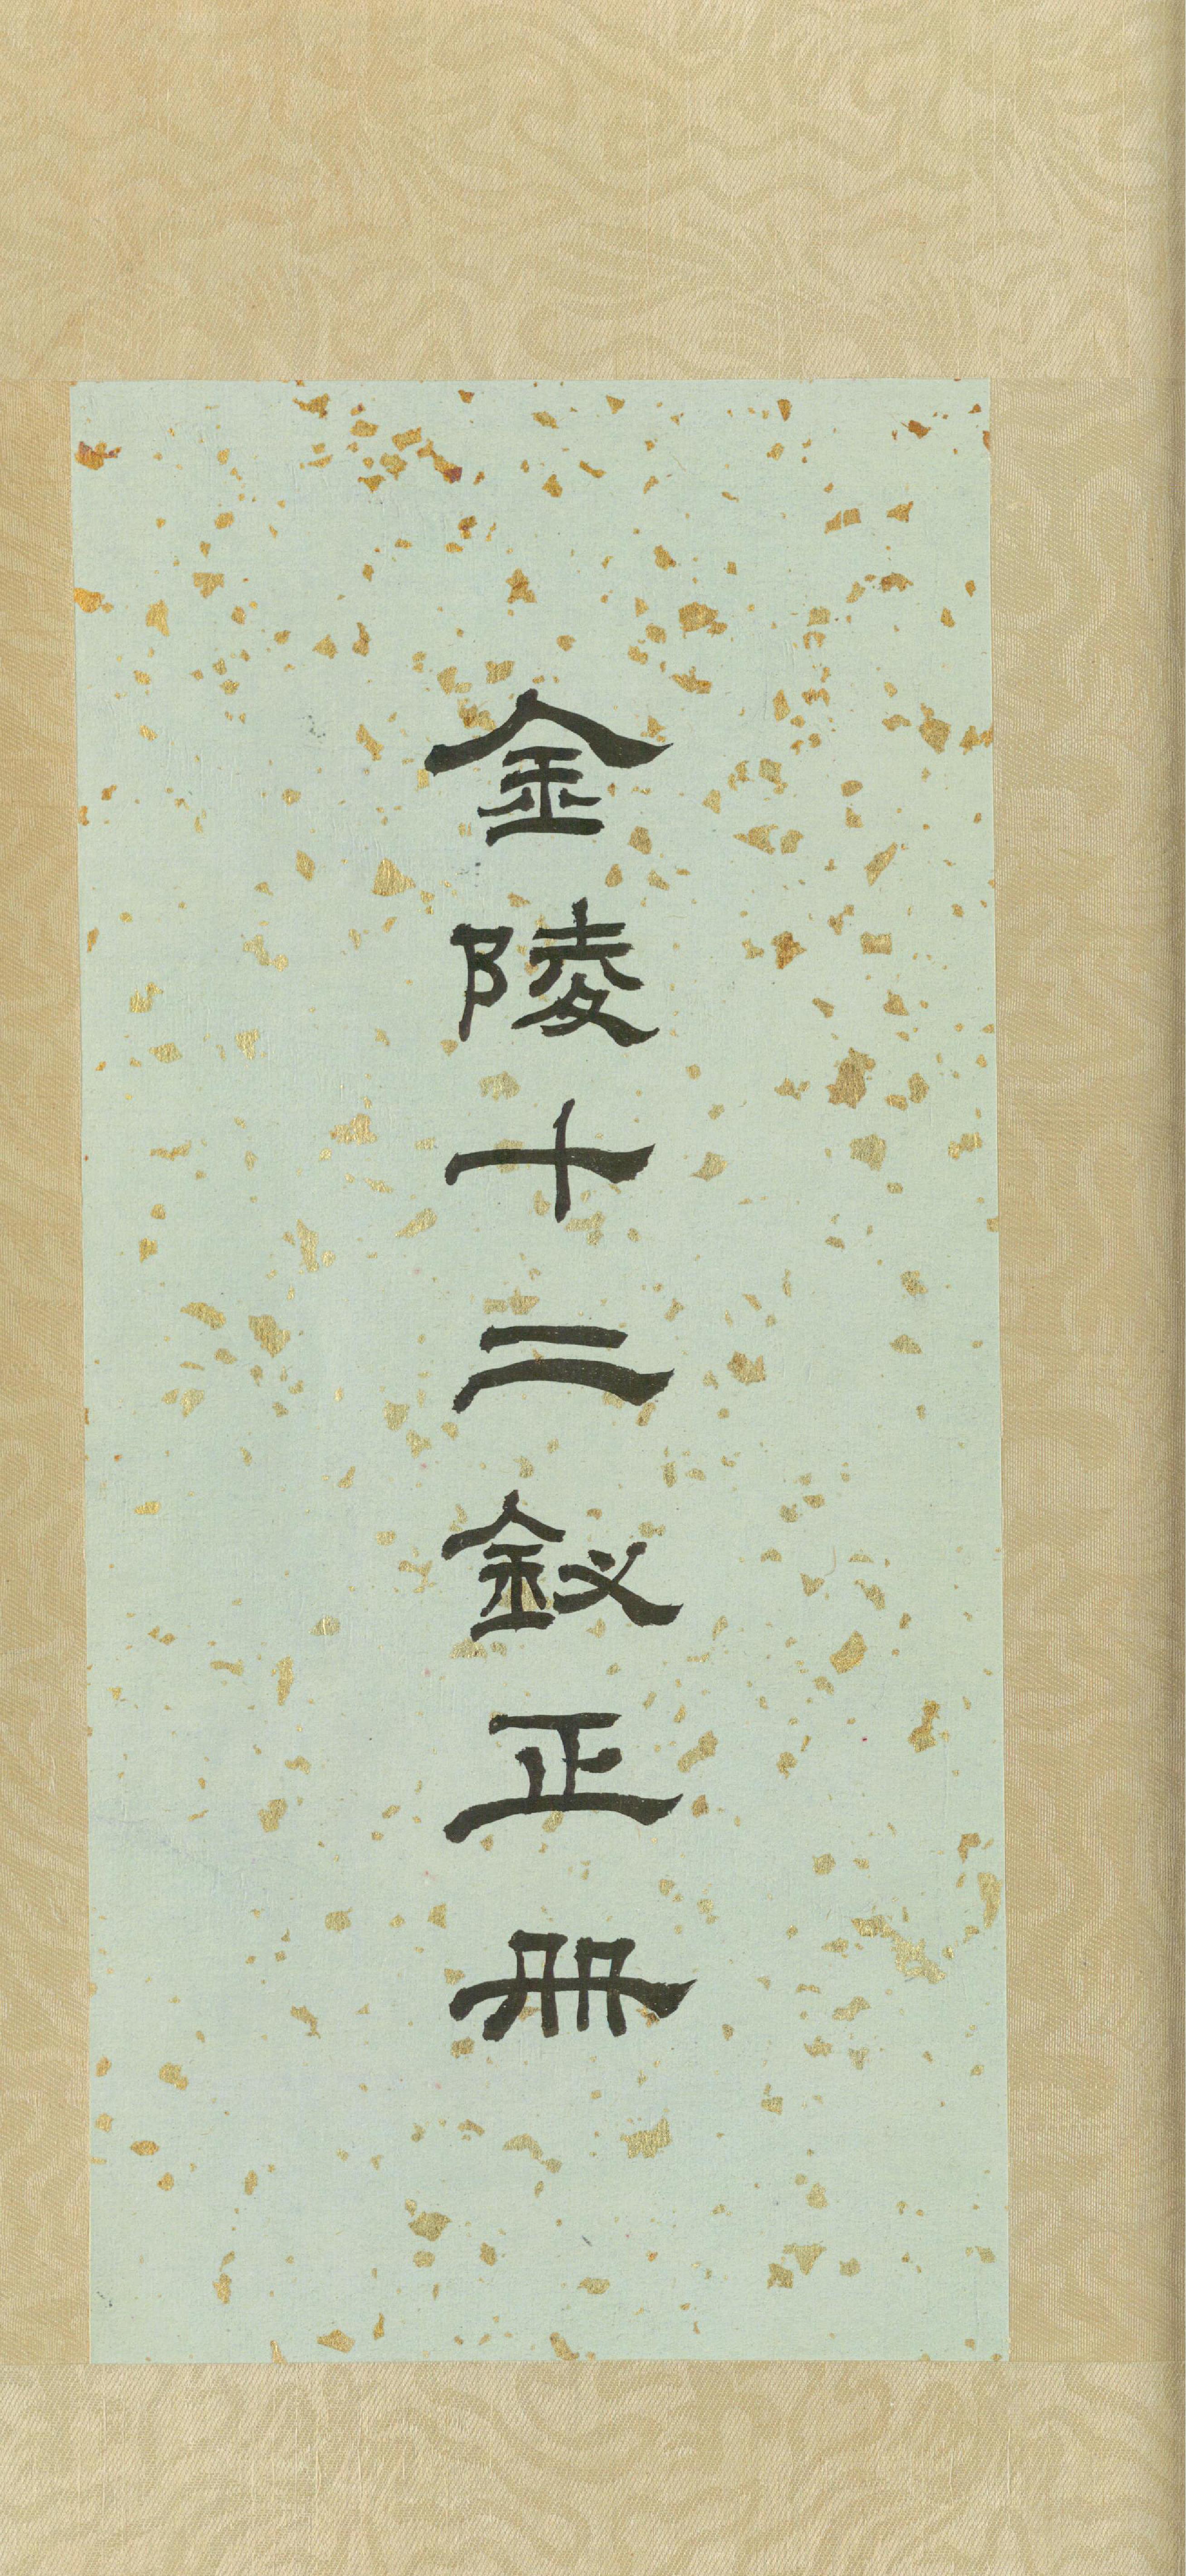 金陵十二釵正冊